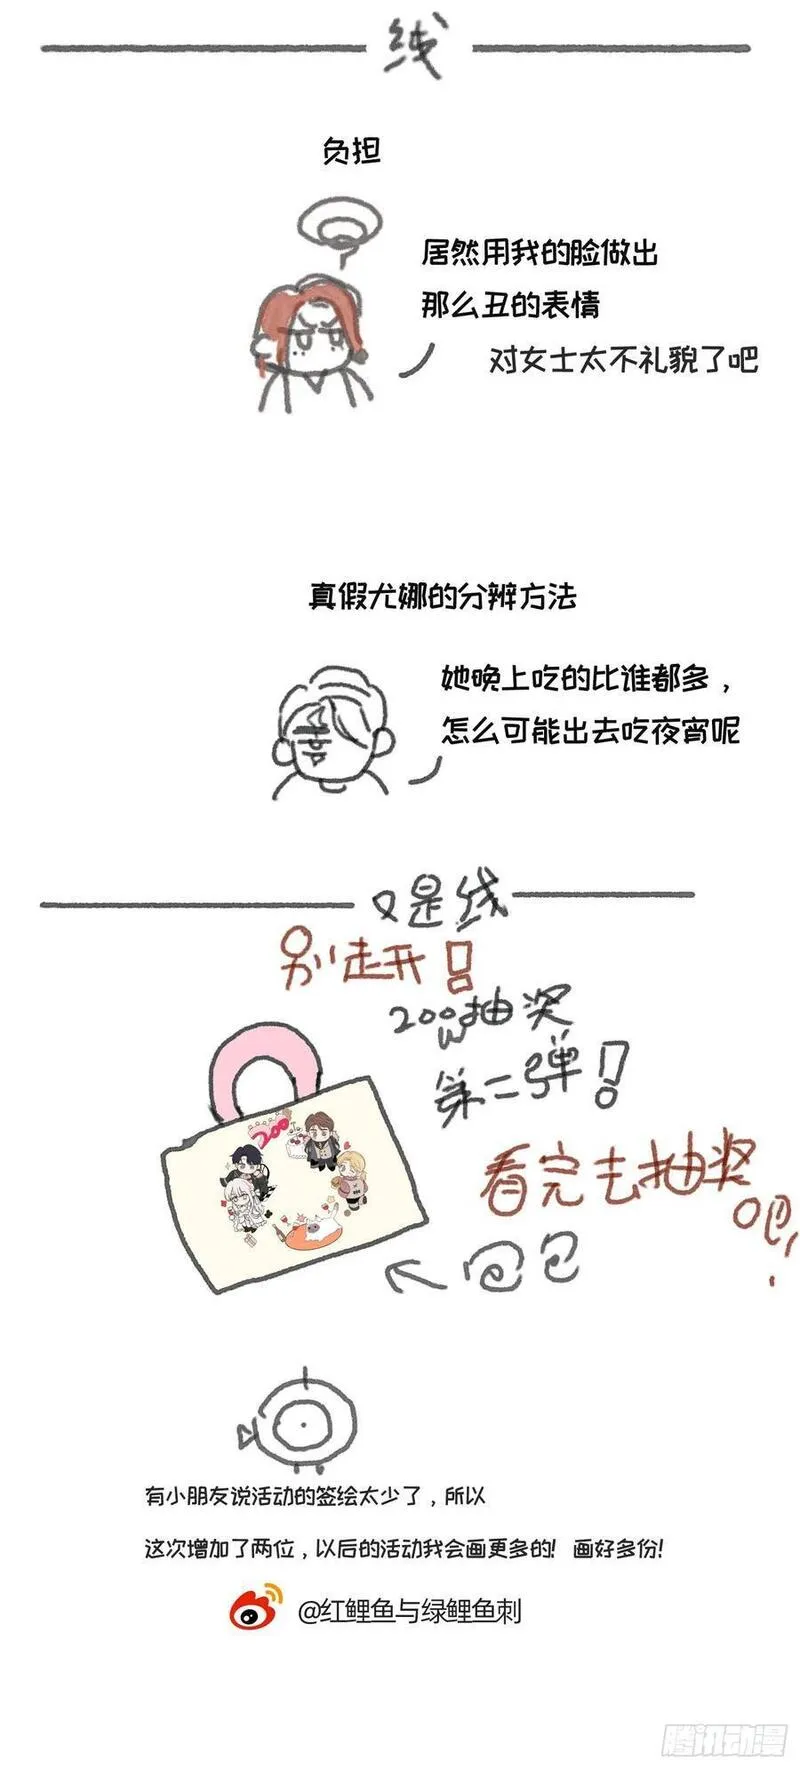 线
负担
居然用我的脸做出
那么丑的表情
对女士太不礼貌了吧
真假尤娜的分辨方法
她晚上吃的比谁都多，
怎么可能出去吃夜宵呢
又是线
别走开!!
200w抽奖
第二弹!
200
看完去抽奖
吧!
包包
有小朋友说活动的签绘太少了，所以
这次增加了两位，以后的活动我会画更多的！画好多份！
@红鲤鱼与绿鲤鱼刺
腾讯动漫